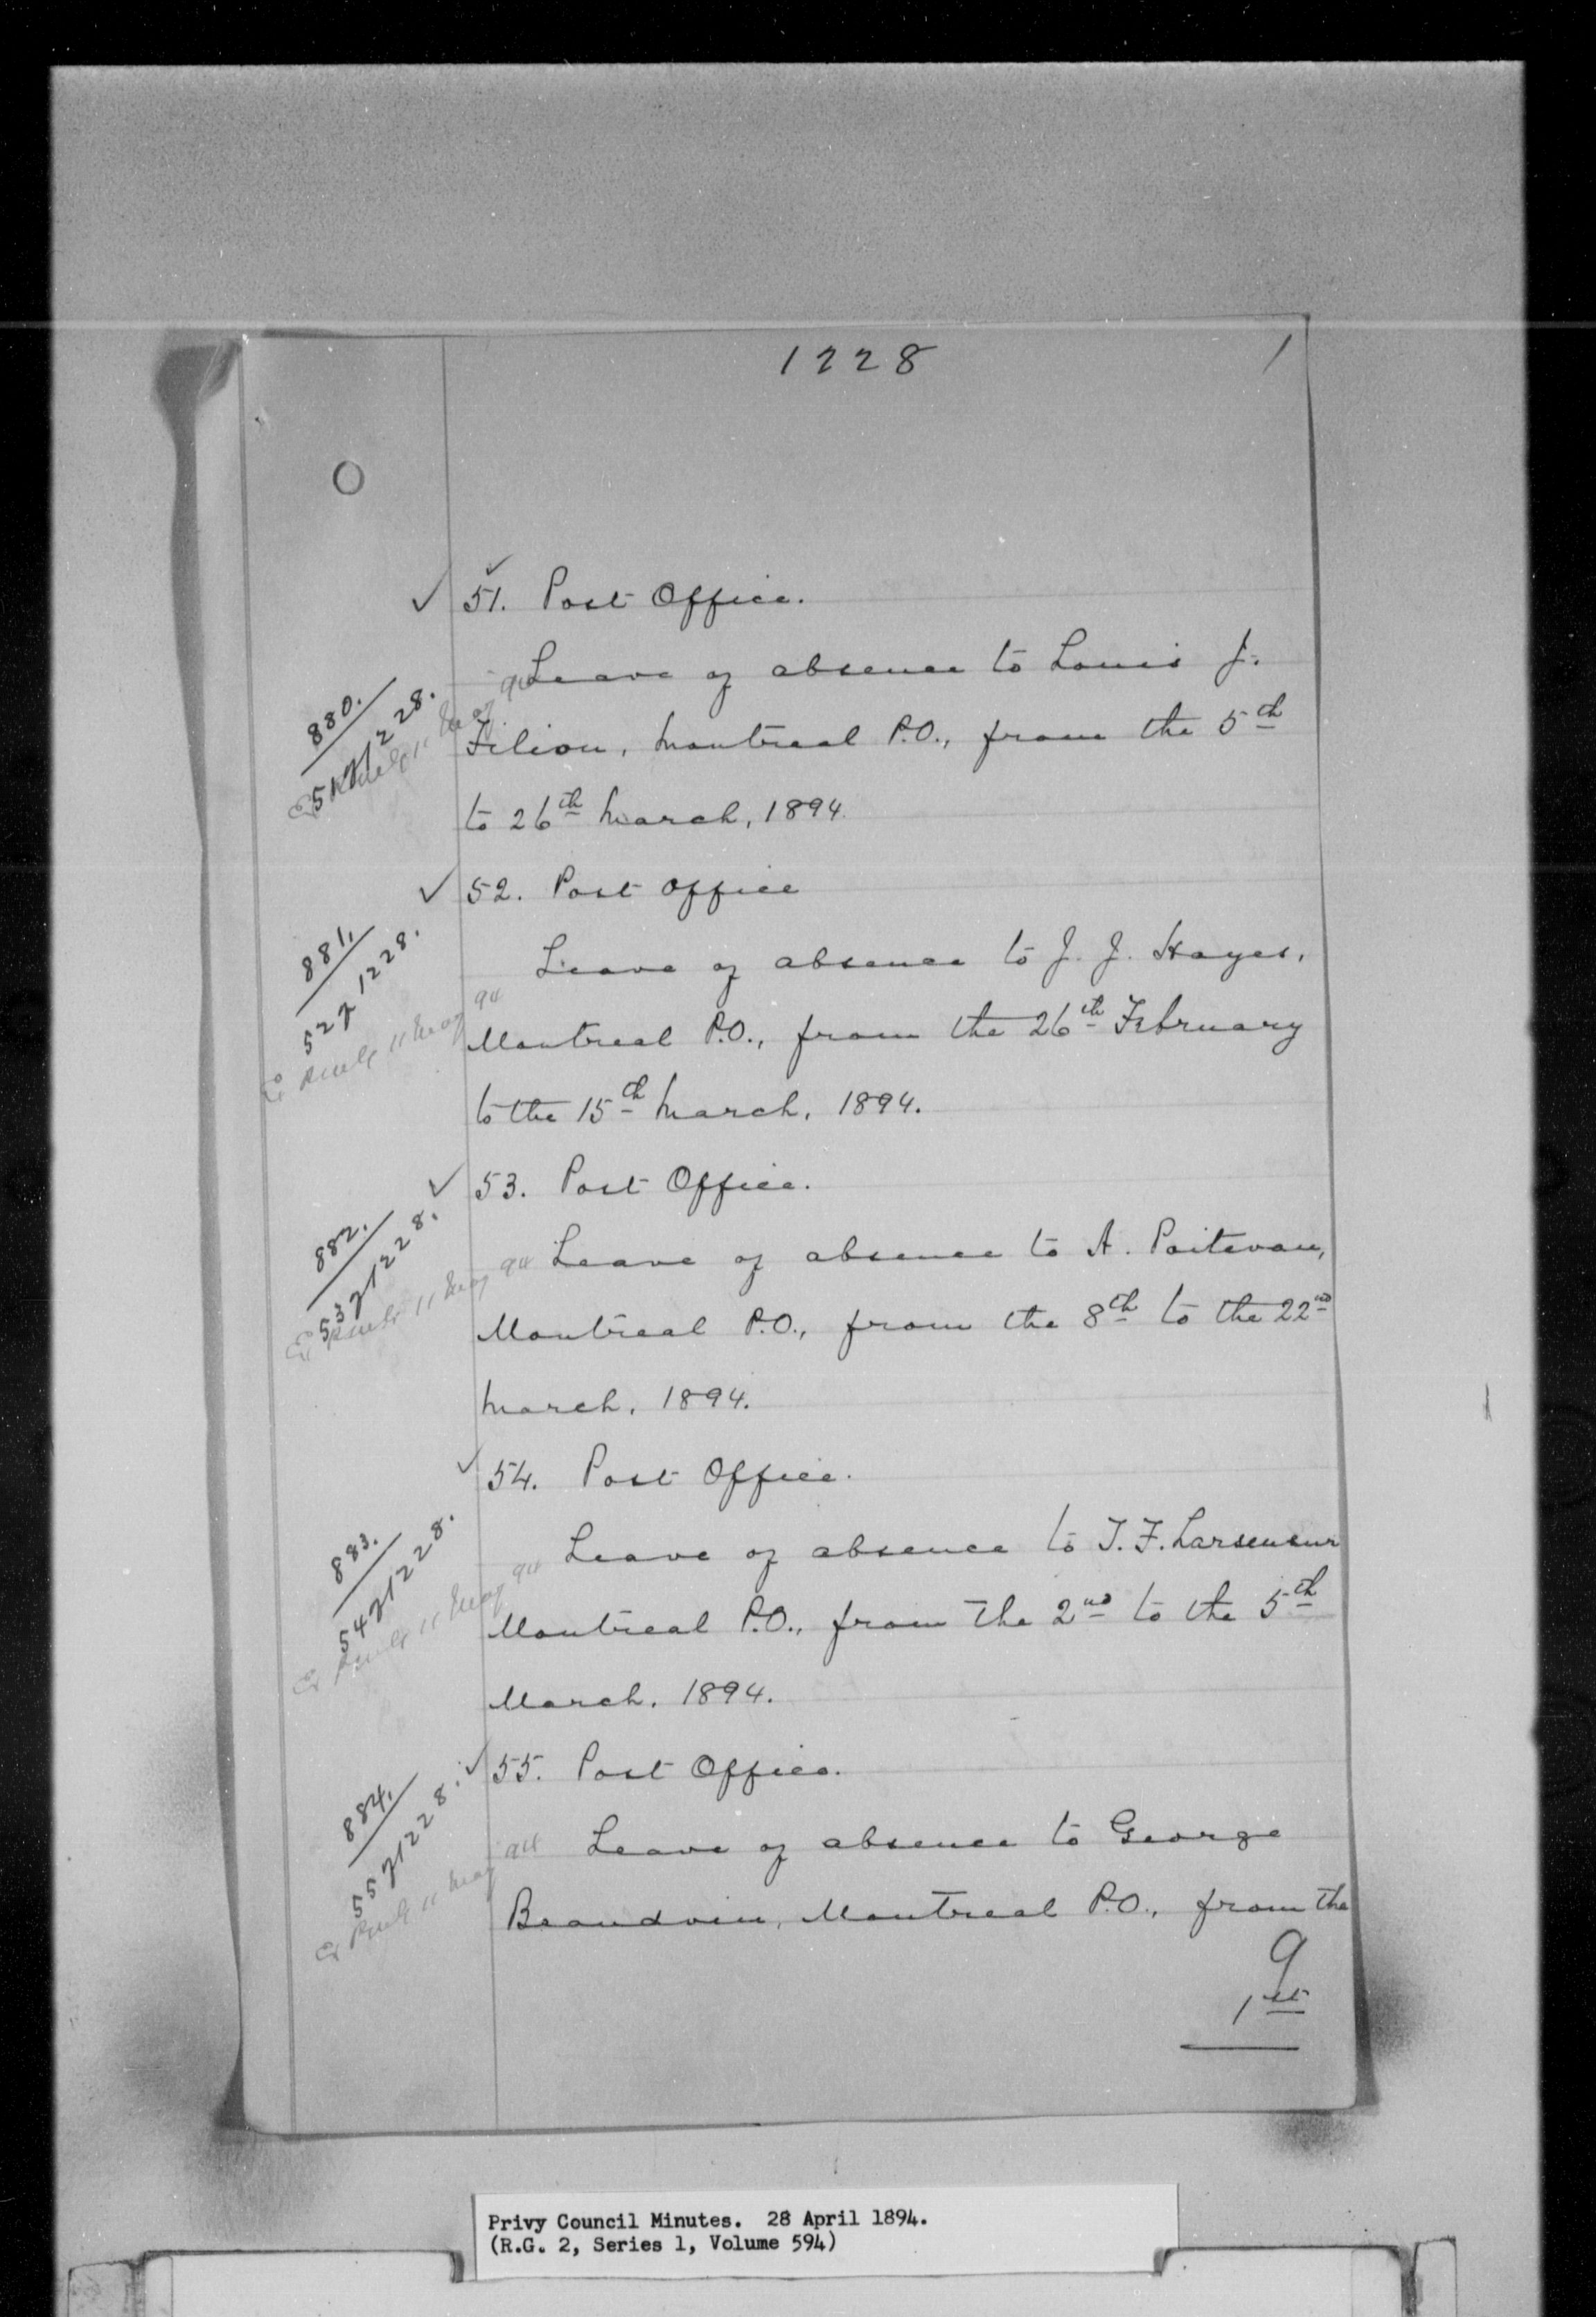 1228
1
51. Post Office.
880.
51 of 1228.
Leave of absence to Louis J.
Filion, Montreal P.O., from the 5th
to 26th March, 1894.
52. Post Office
881.
52 of 1228.
11 May 94
Leave of absence to J. J. Hayes,
Montreal P.O., from the 26th February
to the 15th March, 1894.
53. Post Office.
882.
53 of 1228.
11 May 94
Leave of absence to A. Poitevan,
Montreal P.O., from the 8th to the 22nd
March, 1894.
54. Post Office.
883.
54 of 1228.
11 May 94
Leave of absence to J. F. Larseneur
Montreal P.O., from the 2nd to the 5th
March, 1894.
55. Post Office.
884.
55 of 1228.
11 May 94
Leave of absence to George
Beaudoin, Montreal P.O., from the
9
1st
Privy Council Minutes. 28 April 1894.
(R.G. 2, Series 1, Volume 594)